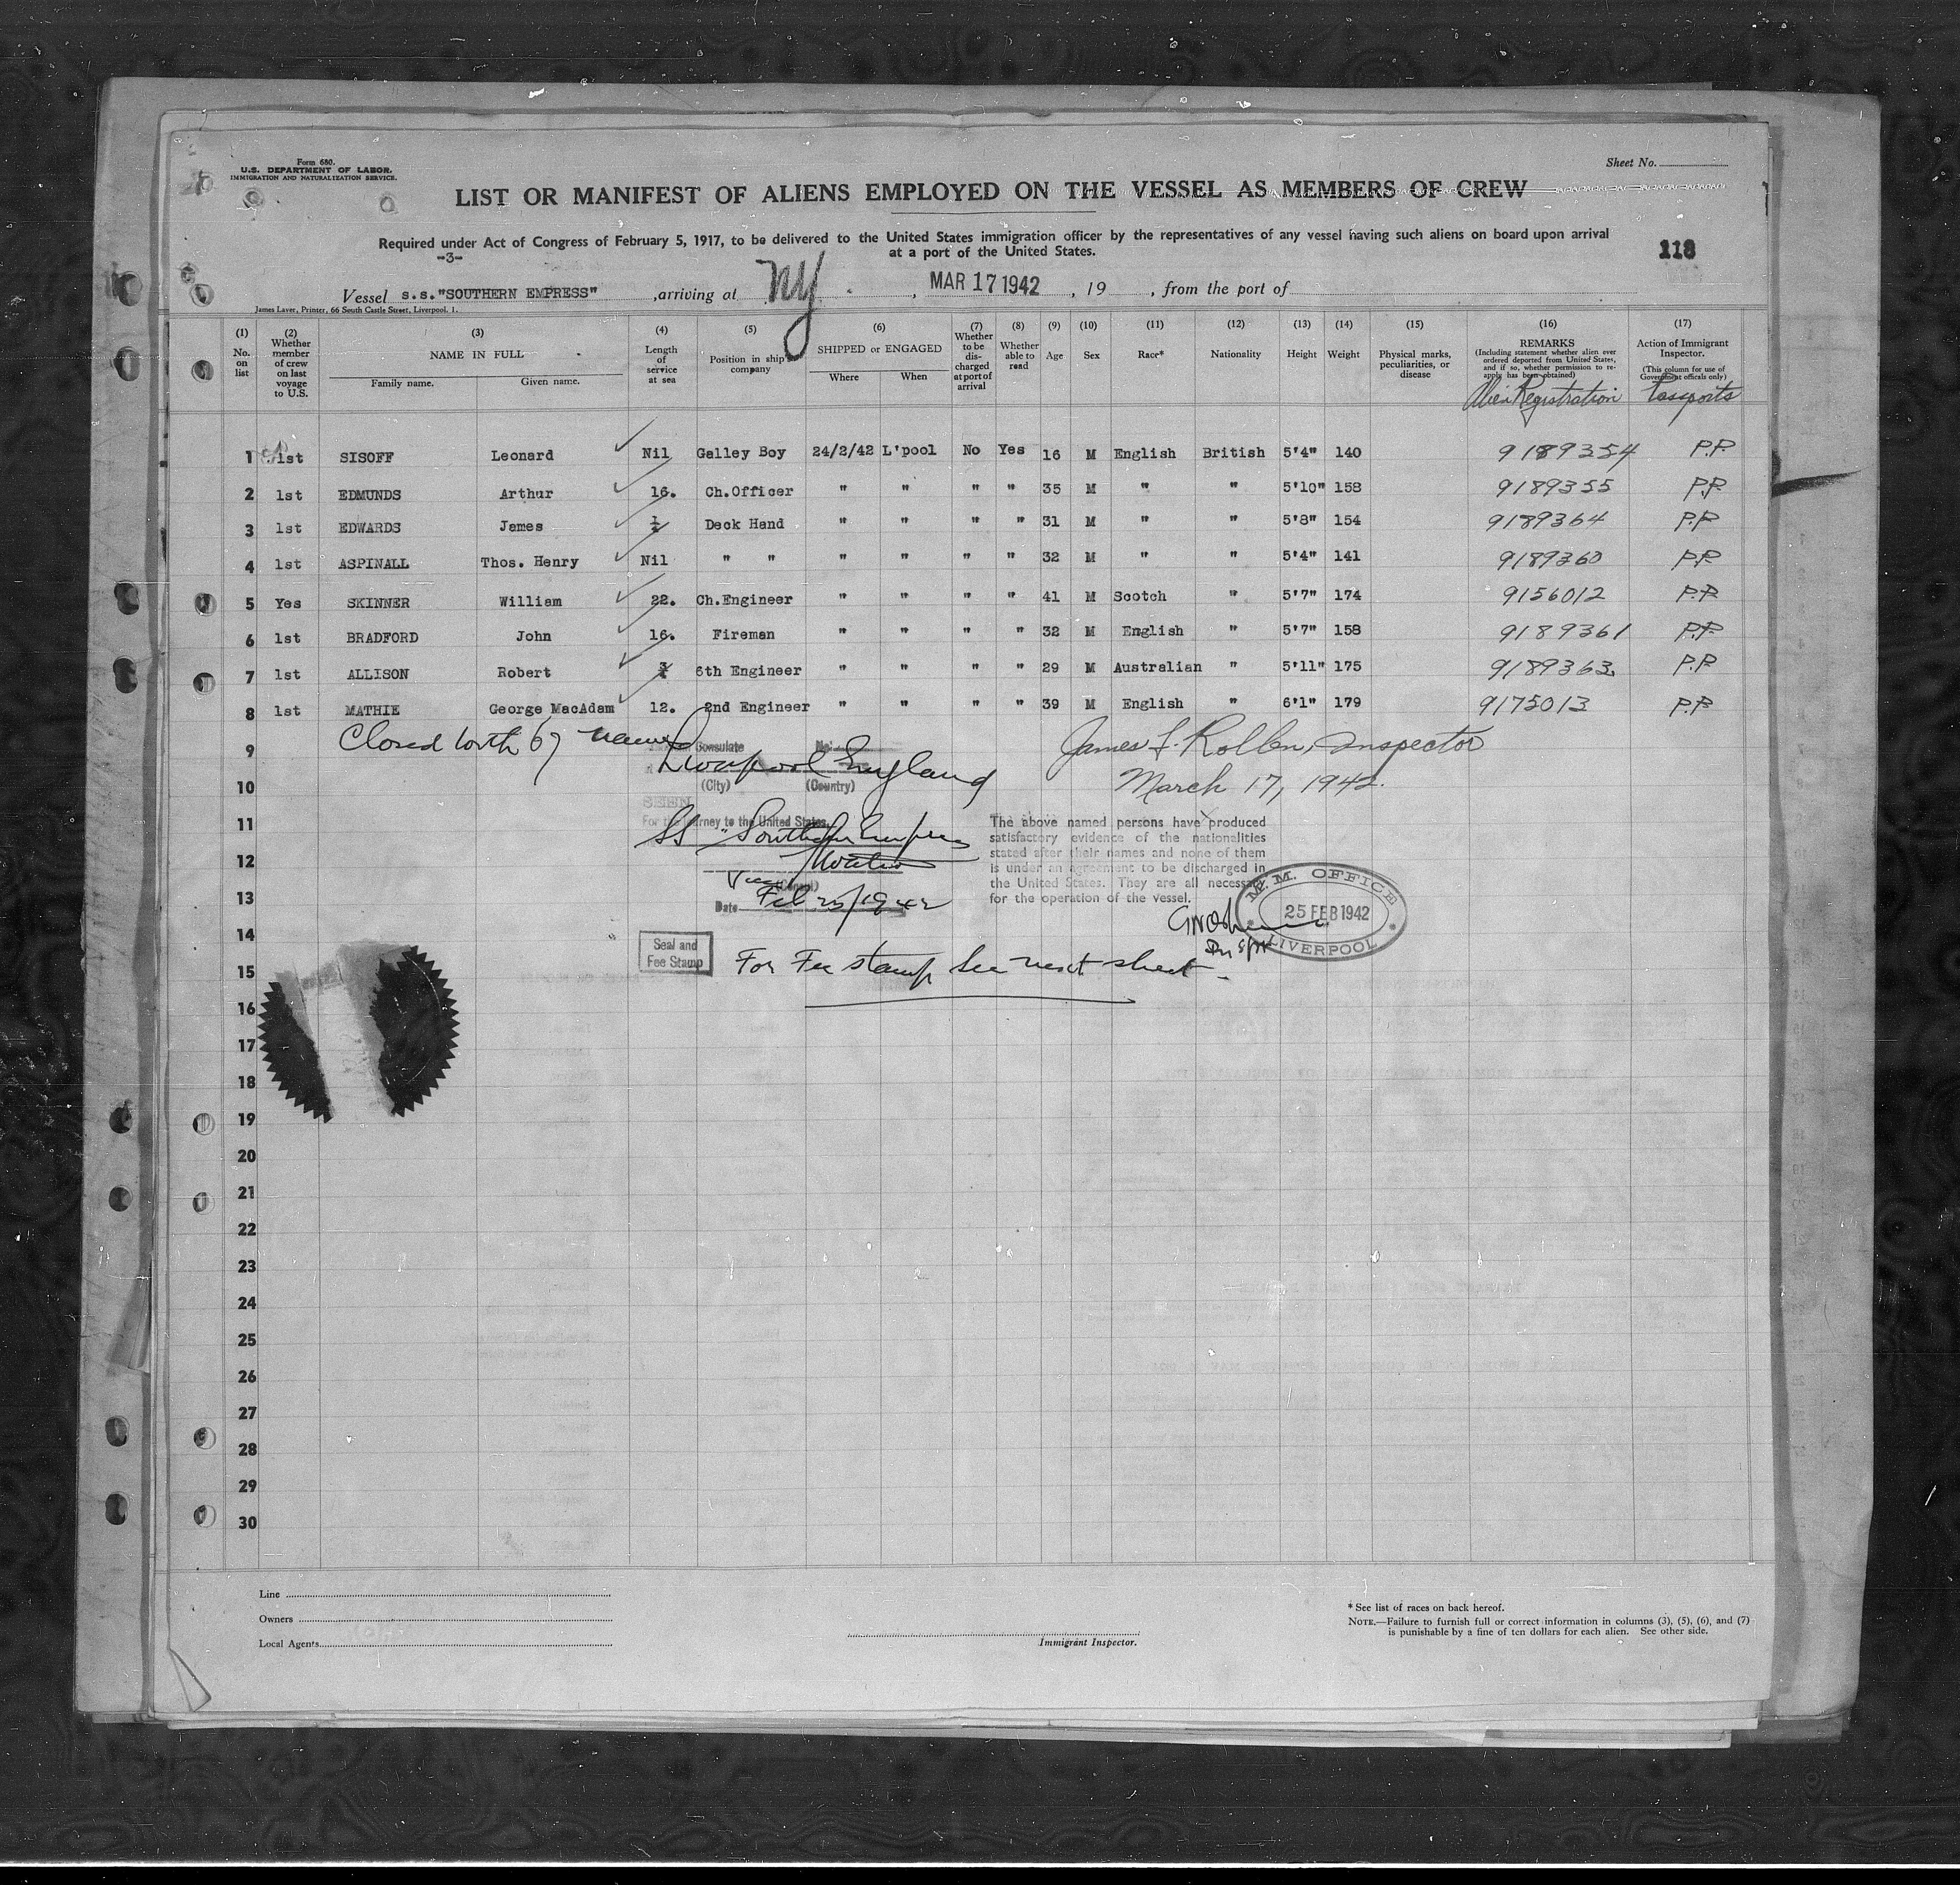 Form 680.
U.S. DEPARTMENT OF LABOR.
IMMIGRATION AND NATURALIZATION SERVICE.
Sheet No.
LIST OR MANIFEST OF ALIENS EMPLOYED ON THE VESSEL AS MEMBERS OF CREW
Required under Act of Congress of February 5, 1917, to be delivered to the United States immigration officer by the representatives of any vessel having such aliens on board upon arrival
at a port of the United States.
-3-
118
Vessel s.s."SOUTHERN EMPRESS" , arriving at NY. , MAR 17 1942 , 19 , from the port of
James Laver, Printer, 66 South Castle Street, Liverpool, 1.
(1) No. on list
(2) Whether member of crew on last voyage to U.S.
(3) NAME IN FULL Family name. Given name.
(4) Length of service at sea
(5) Position in ship's company
(6) SHIPPED or ENGAGED Where When
(7) Whether to be discharged at port of arrival
(8) Whether able to read
(9) Age
(10) Sex
(11) Race*
(12) Nationality
(13) Height
(14) Weight
(15) Physical marks, peculiarities, or disease
(16) REMARKS (Including statement whether alien ever ordered deported from United States, and if so, whether permission to re-apply has been obtained) Alien Registration
(17) Action of Immigrant Inspector. (This column for use of Government officials only) Passports
1 1st SISOFF Leonard Nil Galley Boy 24/2/42 L'pool No Yes 16 M English British 5'4" 140 9189354 P.P.
2 1st EDMUNDS Arthur 16. Ch.Officer " " " " 35 M " " 5'10" 158 9189355 P.P.
3 1st EDWARDS James ½ Deck Hand " " " " 31 M " " 5'8" 154 9189364 P.P
4 1st ASPINALL Thos. Henry Nil " " " " " " 32 M " " 5'4" 141 9189360 P.P.
5 Yes SKINNER William 22. Ch.Engineer " " " " 41 M Scotch " 5'7" 174 9156012 P.P.
6 1st BRADFORD John 16. Fireman " " " " 32 M English " 5'7" 158 9189361 P.P.
7 1st ALLISON Robert 6th Engineer " " " " 29 M Australian " 5'11" 175 9189363 P.P
8 1st MATHIE George MacAdam 12. 2nd Engineer " " " " 39 M English " 6'1" 179 9175013 P.P
9 Closed with 67 names
Consulate No.
Liverpool England
(City) (Country)
James F. Rollen, Inspector
March 17, 1942.
10
SEEN
11 For the journey to the United States.
SS "Southern Empress
12
Vice (Consul)
13 Date Feb 25/1942
The above named persons have produced
satisfactory evidence of the nationalities
stated after their names and none of them
is under an agreement to be discharged in
the United States. They are all necessary
for the operation of the vessel.
M.M. OFFICE
25 FEB 1942
LIVERPOOL
14
Seal and
Fee Stamp
For Fee stamp see next sheet
15
16
17
18
19
20
21
22
23
24
25
26
27
28
29
30
Line
Owners
Local Agents
Immigrant Inspector.
* See list of races on back hereof.
NOTE.—Failure to furnish full or correct information in columns (3), (5), (6), and (7)
is punishable by a fine of ten dollars for each alien. See other side.